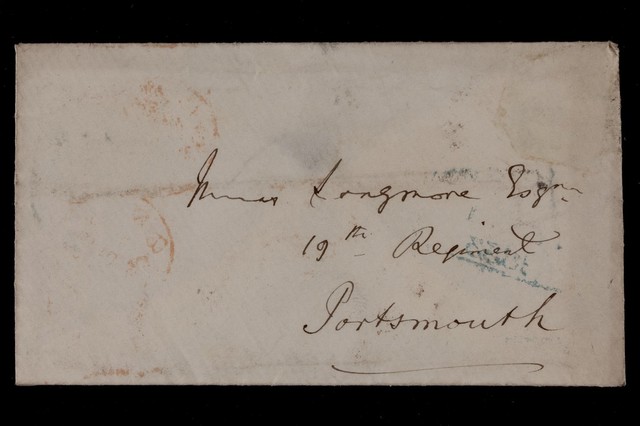 Longmore Esqre
19th Regiment
Portsmouth